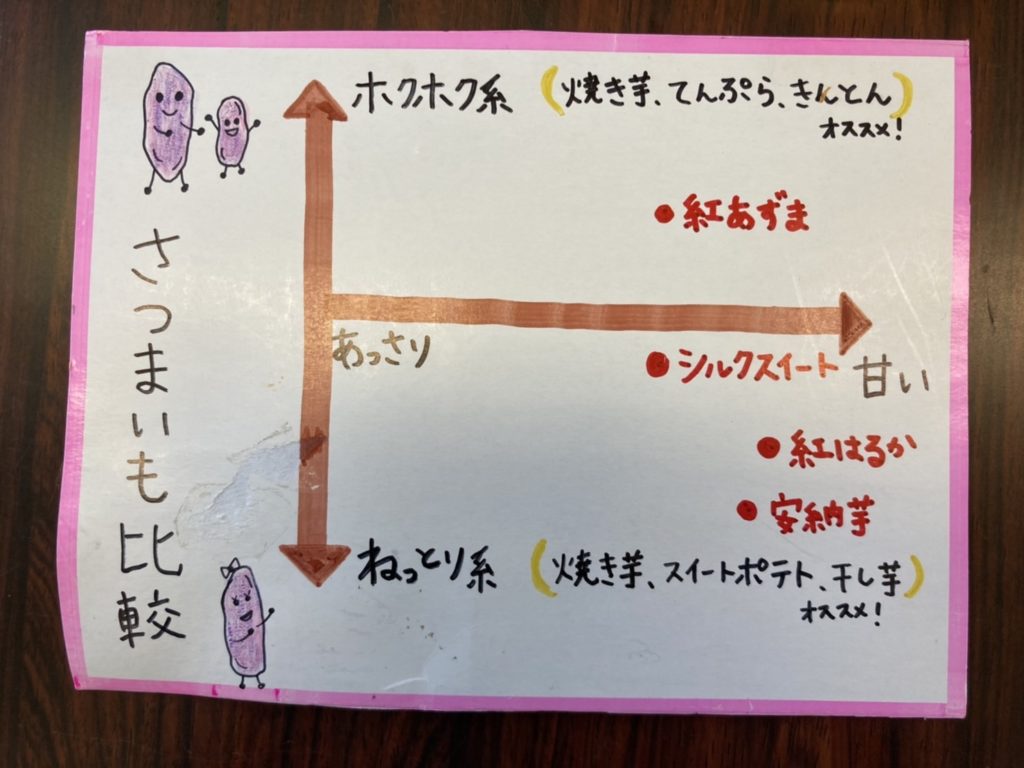 さつまいも比較
ホクホク系 (焼き芋、てんぷら、きんとん)
オススメ!
●紅あずま
あっさり
甘い
●シルクスイート
●紅はるか
●安納芋
ねっとり系 (焼き芋、スイートポテト、干し芋)
オススメ!